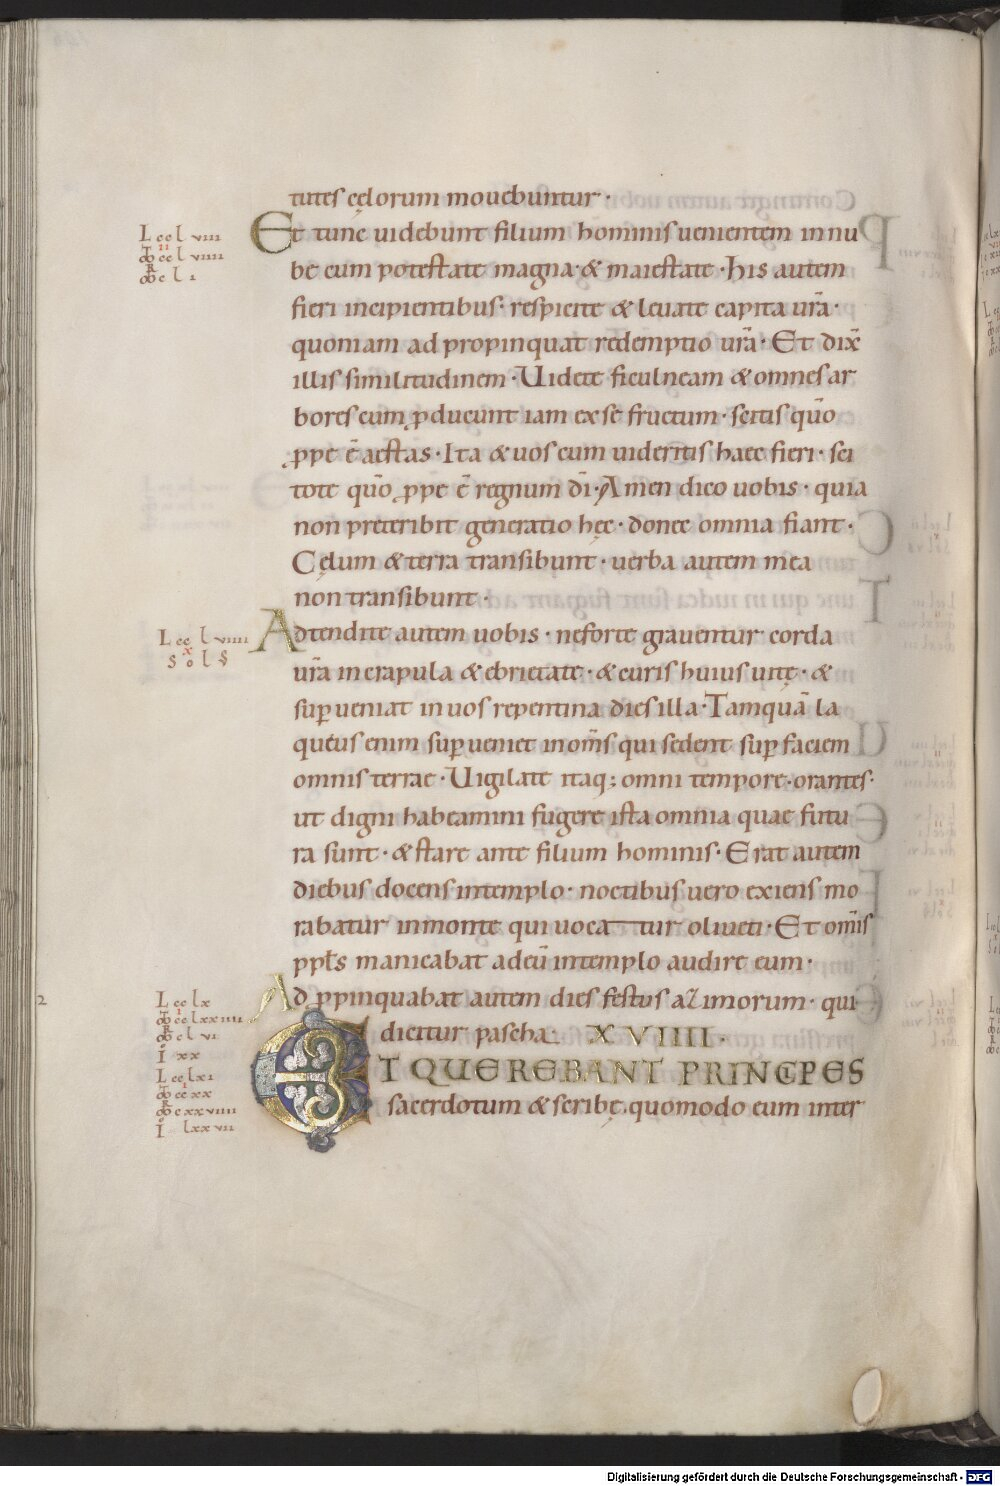 tutes cęlorum mouebuntur ·
Et tunc uidebunt filium hominis uenientem in nu
be cum potestate magna · & maiestate · His autem
fieri incipientibus · respicite & leuate capita ur̄a ·
quoniam ad propinquat redemptio ur̄a · Et dix̄
illis similitudinem · Uidete ficulneam & omnes ar
bores cum ꝓducunt iam ex se fructum · scitis quō
ꝓpe ē aestas · Ita & uos cum uideritis haec fieri · sci
tote quō ꝓpe ē regnum dī · Amen dico uobis · quia
non preteribit generatio hęc · donec omnia fiant ·
Cęlum & terra transibunt · uerba autem mea
non transibunt ·
Adtendite autem uobis · ne forte grauentur corda
ur̄a in crapula & ebrietate · & curis huius uitę · &
suꝑueniat in uos repentina dies illa · Tamquā la
queus enim suꝑueniet in om̄s qui sedent suꝑ faciem
omnis terrae · Uigilate itaq; omni tempore · orantes ·
ut digni habeamini fugere ista omnia quae futu
ra sunt · & stare ante filium hominis · Erat autem
diebus docens in templo · noctibus uero exiens mo
rabatur in monte qui uocatur oliueti · Et om̄is
ppl̄s manicabat ad eū in templo audire eum ·
Adꝓpinquabat autem dies festus azimorum · qui
dicitur pascha · XVIIII ·
ET QUEREBANT PRINCIPES
sacerdotum & scribę · quomodo eum inter
L cc l viii
cc l viiii
c l i
L cc l viiii
x
S o l
L cc lx
cc lxx iiii
c l vi
I xx
L cc lxi
cc xx
c xx viiii
I lxx vii
2
Digitalisierung gefördert durch die Deutsche Forschungsgemeinschaft - DFG